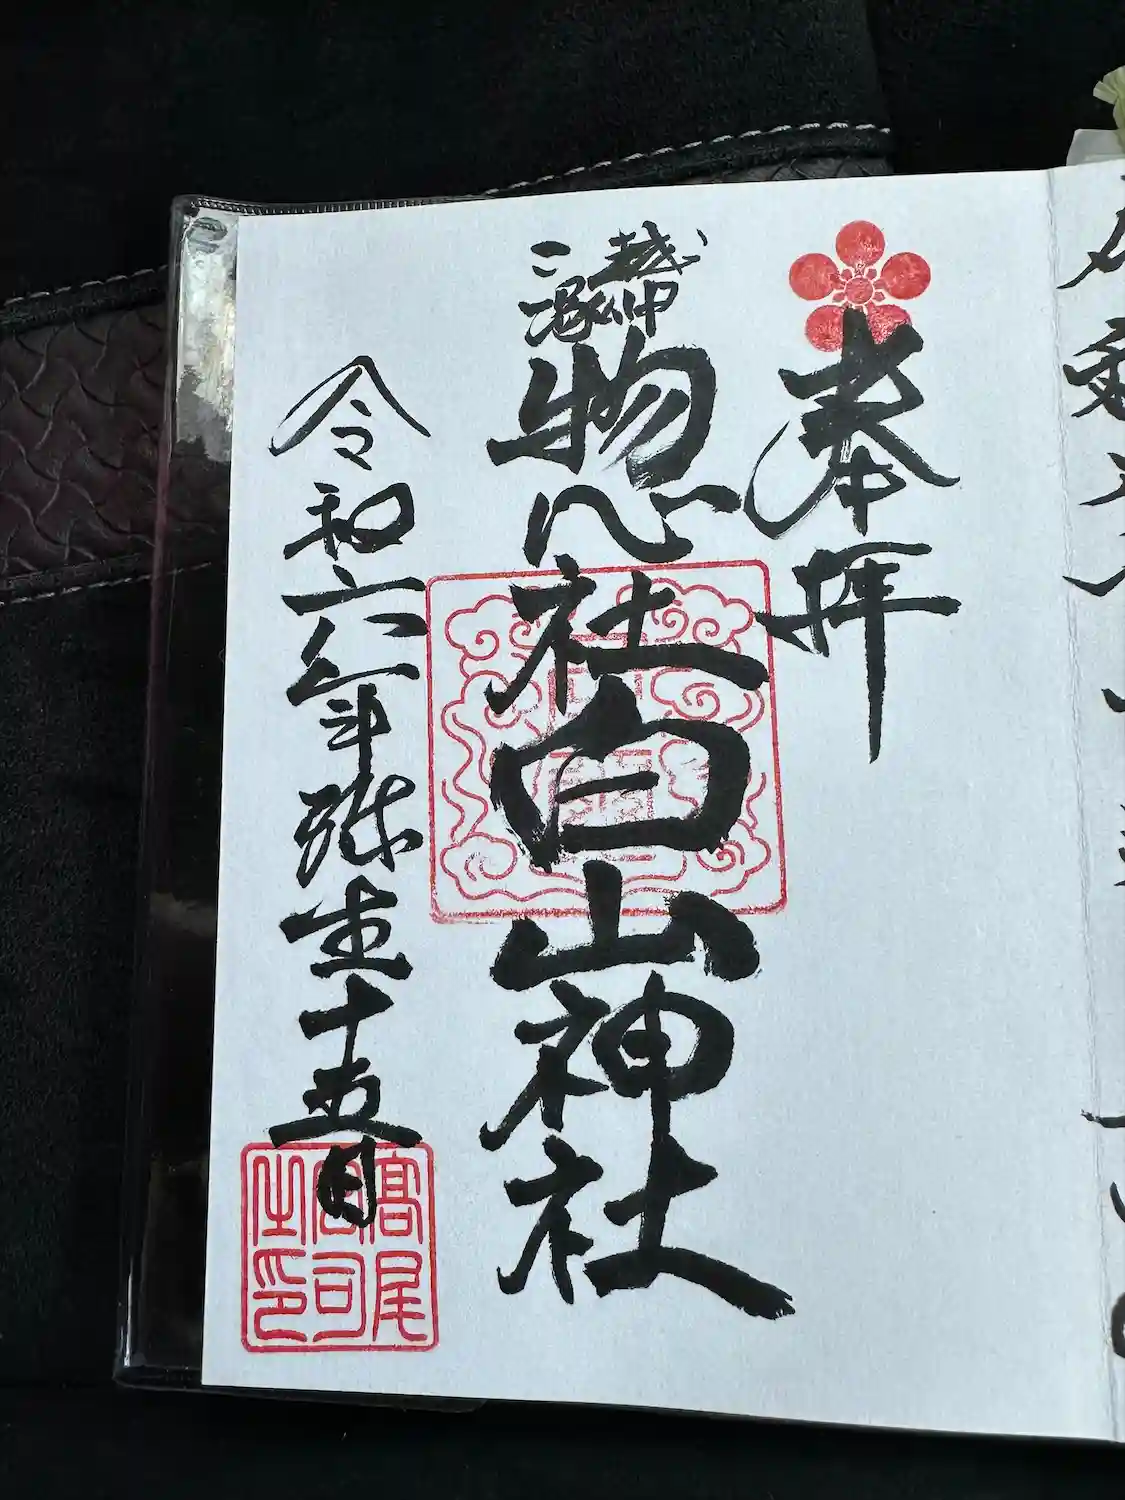 奉拝
越中
二塚
惣社白山神社
令和六年弥生十五日
高尾
宮司
之印